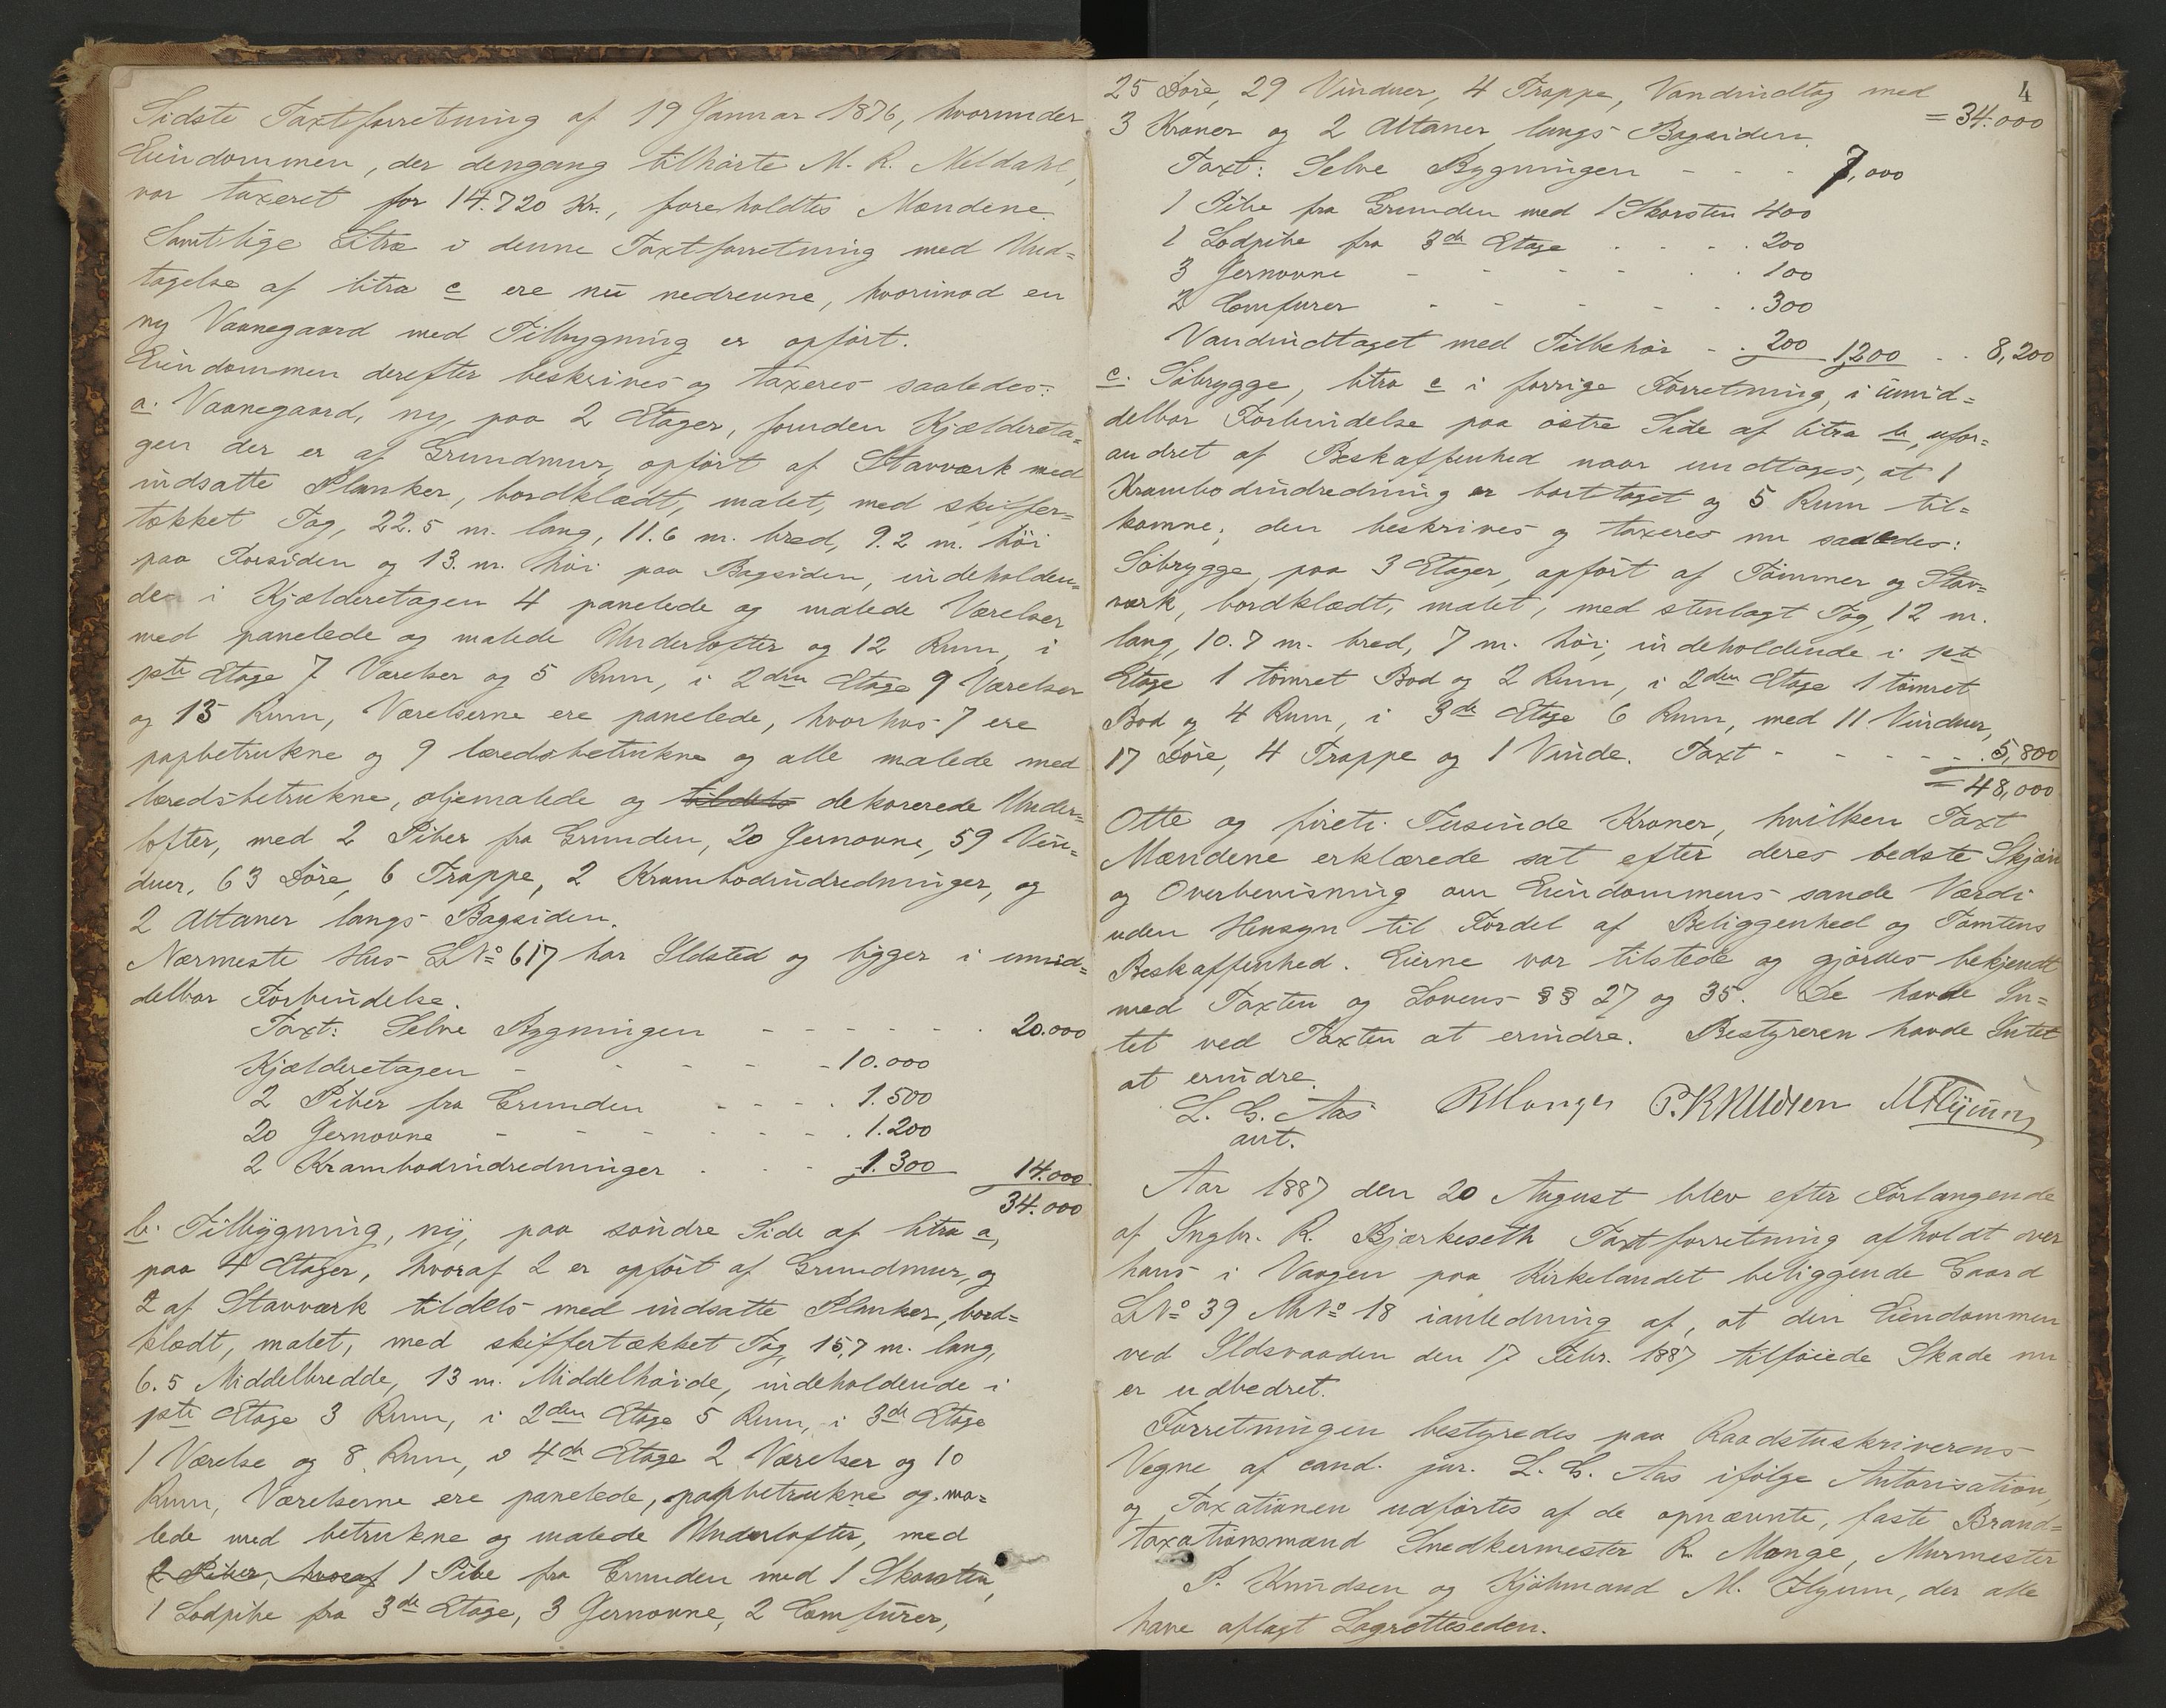 Sidste Taxtforretning af 19 Januar 1876, hvorunder
Eiendommen, der dengang tilhørte M. R. Meldahl,
var taxeret for 14.720 Kr., foreholdtes Mændene.
Samtlige Litra i denne Taxtforretning med Und=
tagelse af litra c ere nu nedrevne, hvorimod en
ny Vaanegaard med Tilbygning er opført.
Eiendommen derefter beskrives og taxeres saaledes:
a. Vaanegaard, ny, paa 2 Etager, foruden Kjældereta=
gen der er af Grundmur, opført af Stavværk med
indsatte Planker, bordklædt, malet, med skiffer=
tækket Tag, 22.5 m. lang, 11.6 m. bred, 9.2 m. høi
paa Forsiden og 13. m. høi paa Bagsiden, indeholden=
de i Kjælderetagen 4 panelede og malede Værelser
med panelede og malede Underlofter og 12 Rum, i
1ste Etage 7 Værelser og 5 Rum, i 2den Etage 9 Værelser
og 15 Rum, Værelserne ere panelede, hvorhos 7 ere
papbetrukne og 9 læredsbetrukne og alle malede med
læredsbetrukne, oljemalede og tildels dekorerede Under=
lofter, med 2 Piber fra Grunden, 20 Jernovne, 59 Vin=
duer, 63 Døre, 6 Trappe, 2 Krambodindredninger, og
2 Altaner langs Bagsiden.
Nærmeste Hus LNo 617 har Ildsted og ligger i umid=
delbar Forbindelse.
Taxt: Selve Bygningen - - - - - - 20.000
Kjælderetagen - - - - - 10.000
2 Piber fra Grunden - - - - 1.500
20 Jernovne - - - - - - 1.200
2 Krambodindredninger - - - 1.300 14.000
34.000
b. Tilbygning, ny, paa søndre Side af litra a,
paa 4 Etager, hvoraf 2 er opført af Grundmur, og
2 af Stavværk tildels med indsatte Planker, bord=
klædt, malet, med skiffertækket Tag, 15,7 m. lang,
6.5 Middelbredde, 13 m. Middelhøide, indeholdende i
1ste Etage 3 Rum, i 2den Etage 5 Rum, i 3de Etage
1 Værelse og 8 Rum, i 4de Etage 2 Værelser og 10
Rum, Værelserne ere panelede, papbetrukne og ma=
lede med betrukne og malede Underlofter, med
2 Piber, hvoraf 1 Pibe fra Grunden med 1 Skorsten,
1 Lodpibe fra 3de Etage, 3 Jernovne, 2 Comfurer,
4
25 Døre, 29 Vinduer, 4 Trappe, Vandindtag med = 34.000
3 Kraner og 2 Altaner langs Bagsiden.
Taxt: Selve Bygningen - - - 7,000
1 Pibe fra Grunden med 1 Skorsten 400
1 Lodpibe fra 3de Etage - - - 200
3 Jernovne - - - - - 100
2 Comfurer - - - - - 300
Vandindtaget med Tilbehør - - 200 1,200 - - 8,200
c. Søbrygge, litra c i forrige Forretning, i umid=
delbar Forbindelse paa østre Side af litra b, ufor=
andret af Beskaffenhed naar undtages, at 1
Krambodindredning er borttaget og 5 Rum til=
komne; den beskrives og taxeres nu saaledes:
Søbrygge, paa 3 Etager, opført af Tømmer og Stav=
værk, bordklædt, malet, med stenlagt Tag, 12 m.
lang, 10.7 m. bred, 7 m. høi, indeholdende i 1ste
Etage 1 tømret Bod og 2 Rum, i 2den Etage 1 tømret
Bod og 4 Rum, i 3de Etage 6 Rum, med 11 Vinduer,
17 Døre, 4 Trappe og 1 Vinde. Taxt - - - - 5,800
= 48,000
Otte og fireti Tusinde Kroner, hvilken Taxt
Mændene erklærede sat efter deres bedste Skjøn
og Overbevisning om Eiendommens sande Værdi
uden Hensyn til Fordel af Beliggenhed og Tomtens
Beskaffenhed. Eierne var tilstede og gjordes bekjendt
med Taxten og Lovens §§ 27 og 35. De havde In=
tet ved Taxten at erindre. Bestyreren havde Intet
at erindre.
L. G. Aas RMonge P. Knudsen M Flyum
aut.
Aar 1887 den 20 August blev efter Forlangende
af Ingbr. R. Bjærkeseth Taxtforretning afholdt over
hans i Vaagen paa Kirkelandet beliggende Gaard
LNo 39 MNo 18 ianledning af, at den Eiendommen
ved Ildsvaaden den 17 Febr. 1887 tilføiede Skade nu
er udbedret.
Forretningen bestyredes paa Raadstuskriverens
Vegne af cand. jur. L. G. Aas ifølge Autorisation,
og Taxationen udførtes af de opnævnte, faste Brand=
taxationsmænd Snedkermester R. Monge, Murmester
P. Knudsen og Kjøbmand M. Flyum, der alle
have aflagt Lagretteseden.